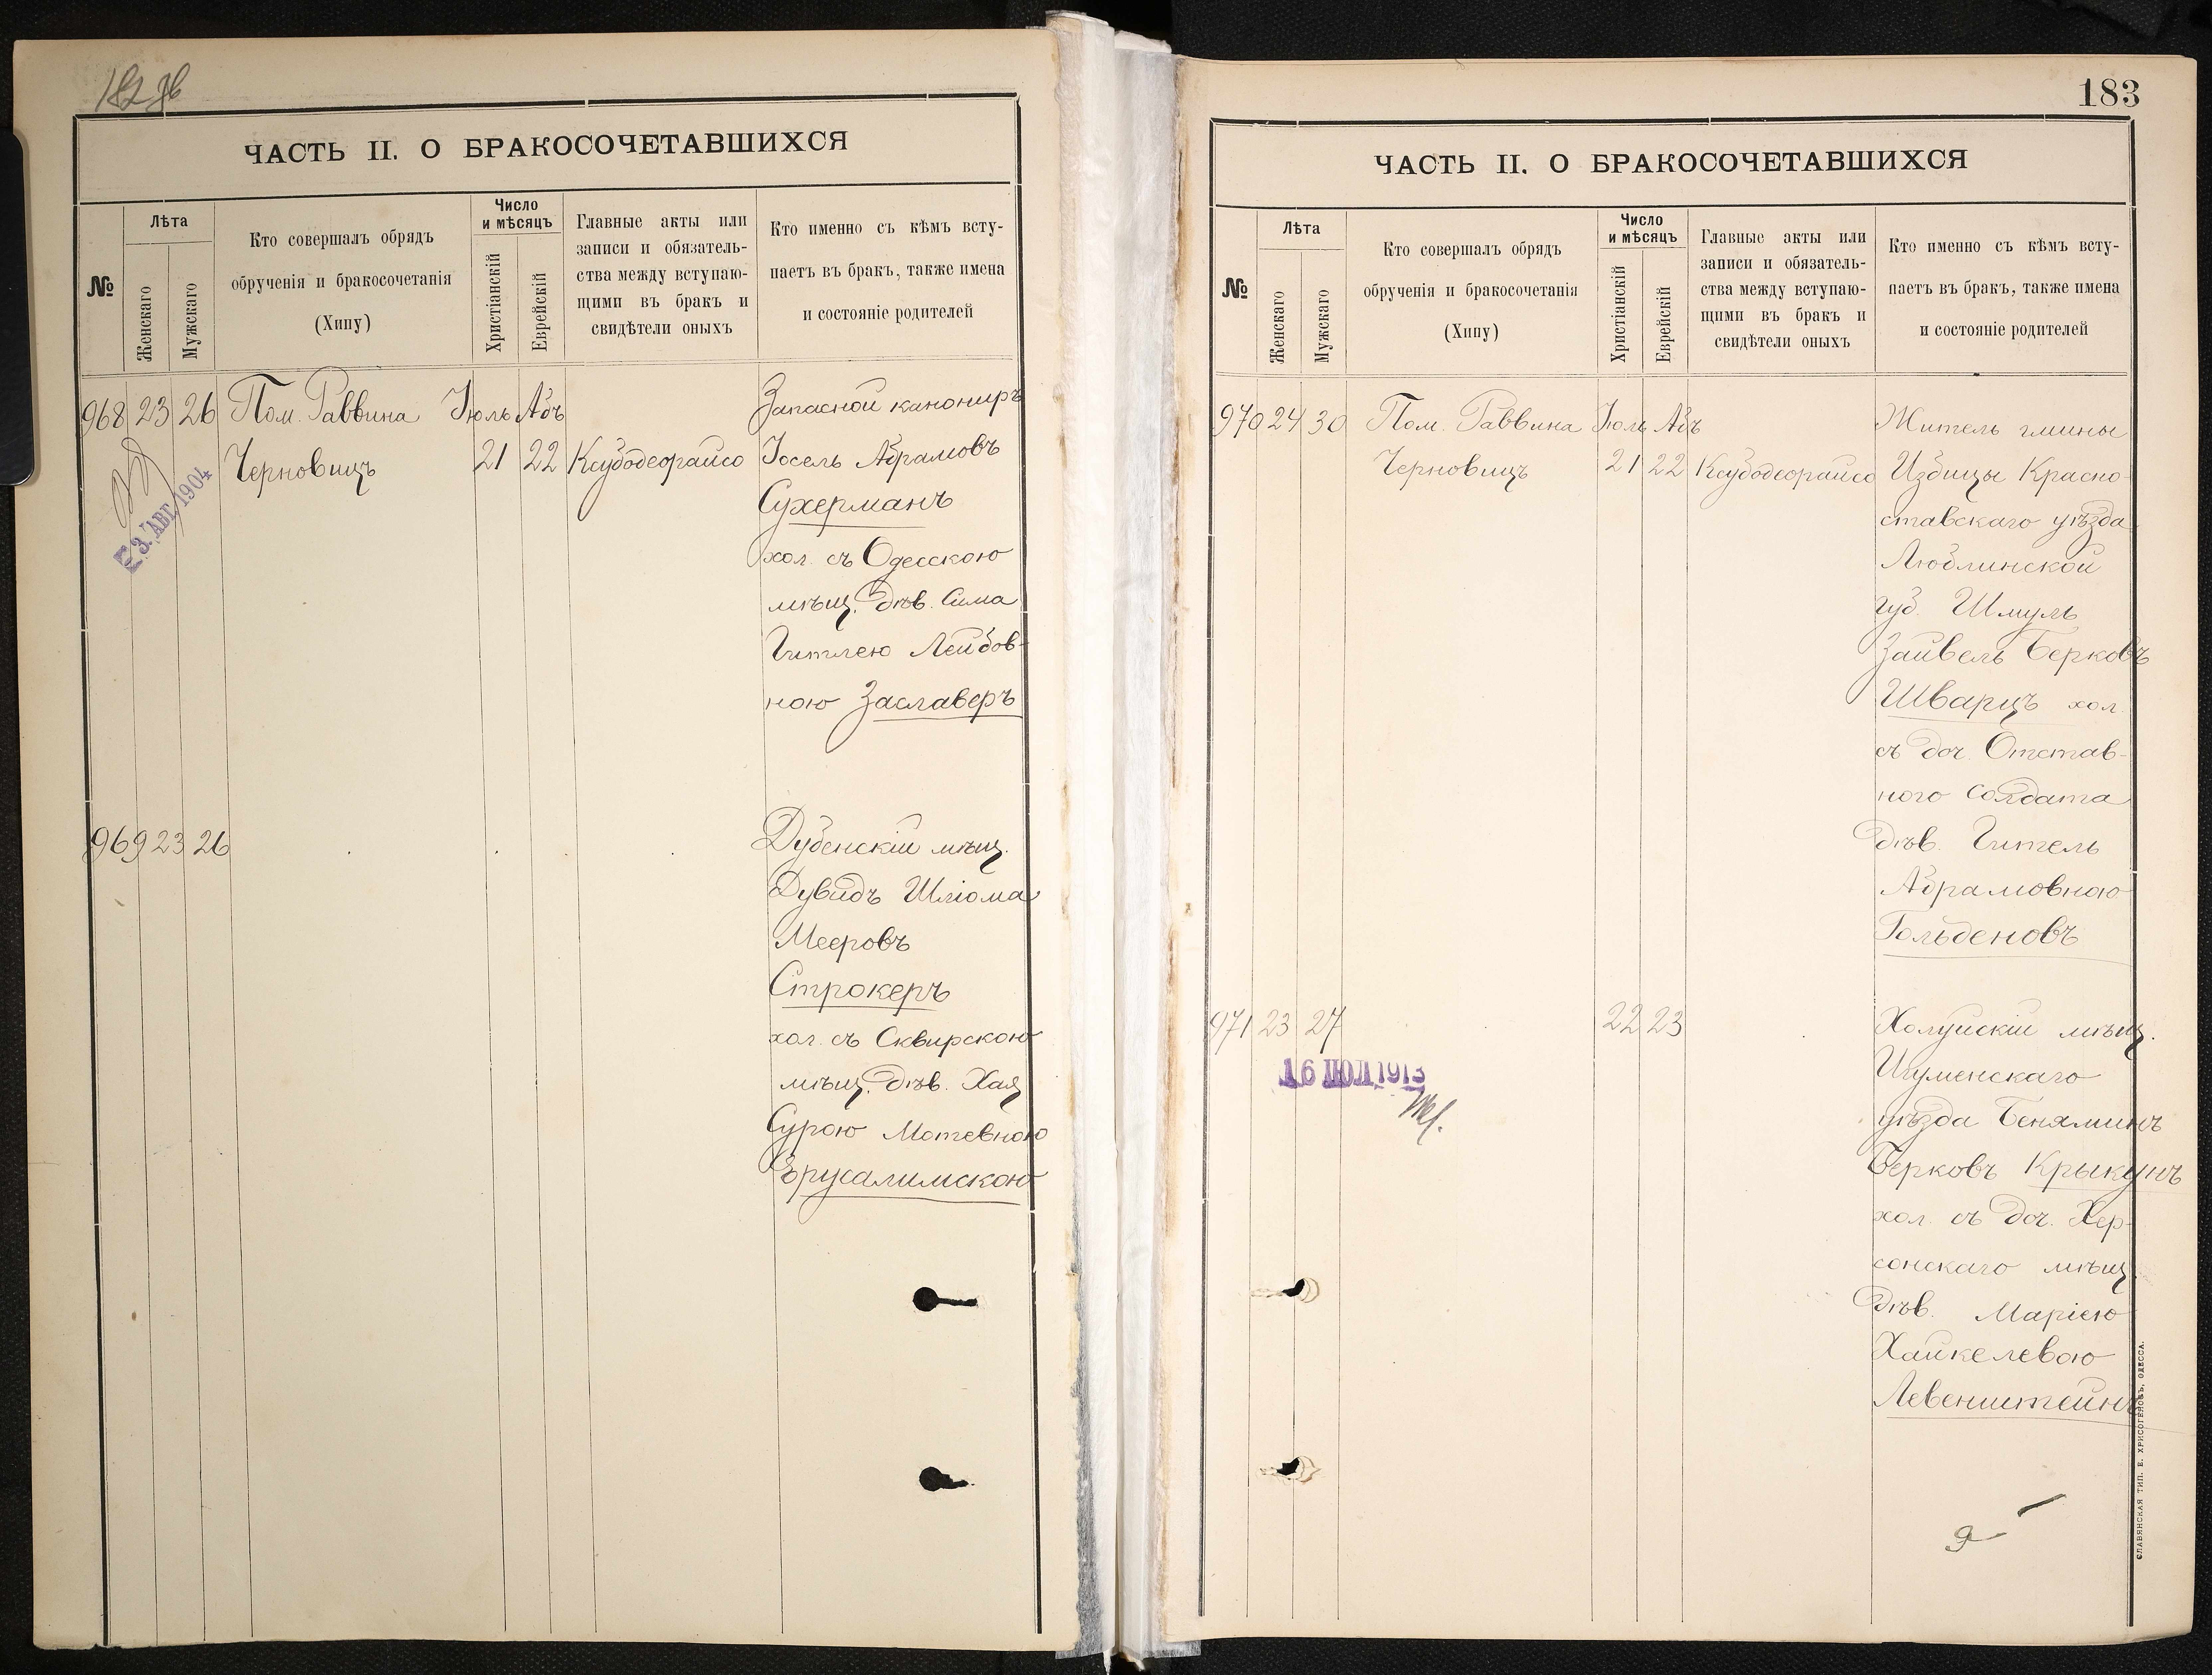 182 об
ЧАСТЬ II. О БРАКОСОЧЕТАВШИХСЯ
№
Лѣта
Женскаго
Мужскаго
Кто совершалъ обрядъ
обрученія и бракосочетанія
(Хипу)
Число
и мѣсяцъ
Христіанскій
Еврейскій
Главные акты или
записи и обязатель-
ства между вступаю-
щими въ бракъ и
свидѣтели оныхъ
Кто именно съ кѣмъ всту-
паетъ въ бракъ, также имена
и состояніе родителей
968 23 26 Пом. Раввина Іюль Абъ Запасной канониръ
Черновицъ 21 22 Ксубодеорайсо Іосель Абрамовъ
3. АВГ. 1904
Сухерманъ
хол. съ Одесскою
мѣщ. дѣв. Сима
Гитлею Лейбов-
ною Заславеръ
969 23 26 Дубенскій мѣщ.
Дувидъ Шліома
Мееровъ
Строкеръ
хол. съ Сквирскою
мѣщ. дѣв. Хая
Сурою Мотевною
Ерусалимскою
183
ЧАСТЬ II. О БРАКОСОЧЕТАВШИХСЯ
№
Лѣта
Женскаго
Мужскаго
Кто совершалъ обрядъ
обрученія и бракосочетанія
(Хипу)
Число
и мѣсяцъ
Христіанскій
Еврейскій
Главные акты или
записи и обязатель-
ства между вступаю-
щими въ бракъ и
свидѣтели оныхъ
Кто именно съ кѣмъ всту-
паетъ въ бракъ, также имена
и состояніе родителей
970 24 30 Пом. Раввина Іюль Абъ Житель гмины
Черновицъ 21 22 Ксубодеорайсо Избицы Красно-
ставскаго уѣзда
Люблинской
губ. Шмуль
Зайвель Берковъ
Шварцъ хол.
съ доч. Отстав-
ного солдата
дѣв. Гитель
Абрамовною
Гольденовъ
971 23 27 22 23 Холуйскій мѣщ.
16 ІЮЛ 1913
Игуменскаго
уѣзда Беняминъ
Берковъ Крыкунъ
хол. съ доч. Хер-
сонскаго мѣщ.
дѣв. Маріею
Хайкелевою
Левенштейнъ
СЛАВЯНСКАЯ ТИП. Е. ХРИСОГЕЛОСЪ, ОДЕССА.